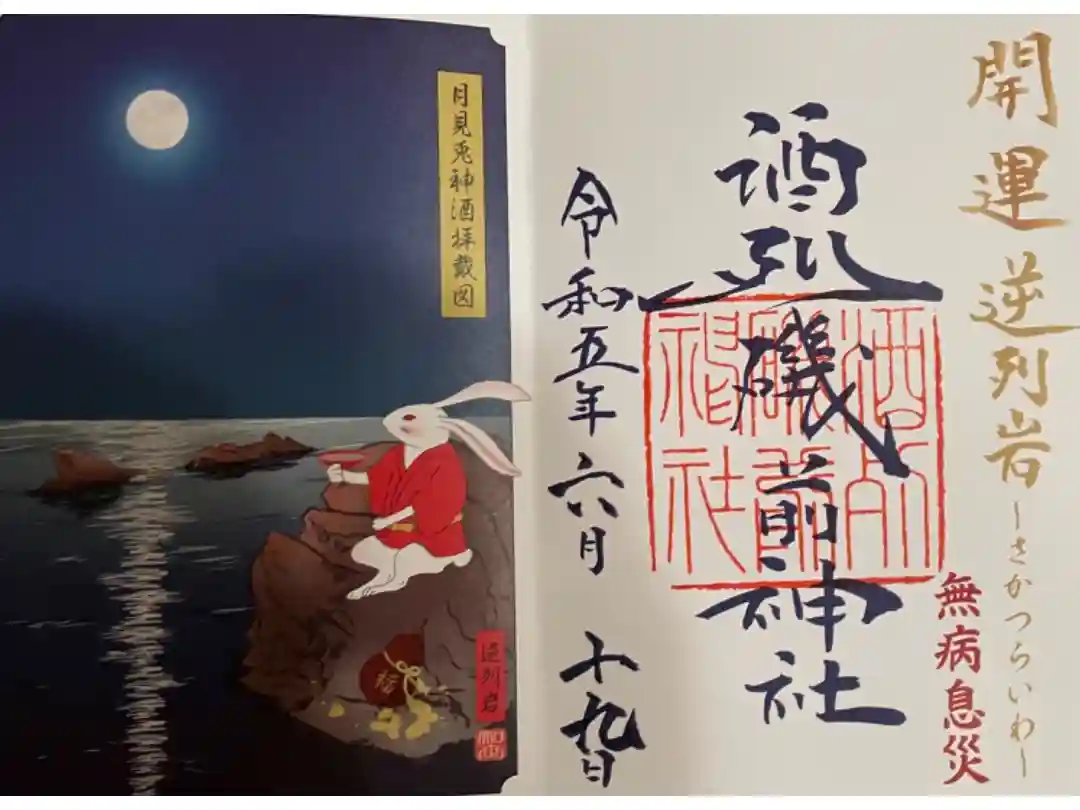 開運 逆列岩
~さかつらいわ~
無病息災
酒列磯前神社
酒列
磯前
神社
令和五年六月 十九日
月見兎神酒拝戴図
逆列岩
福